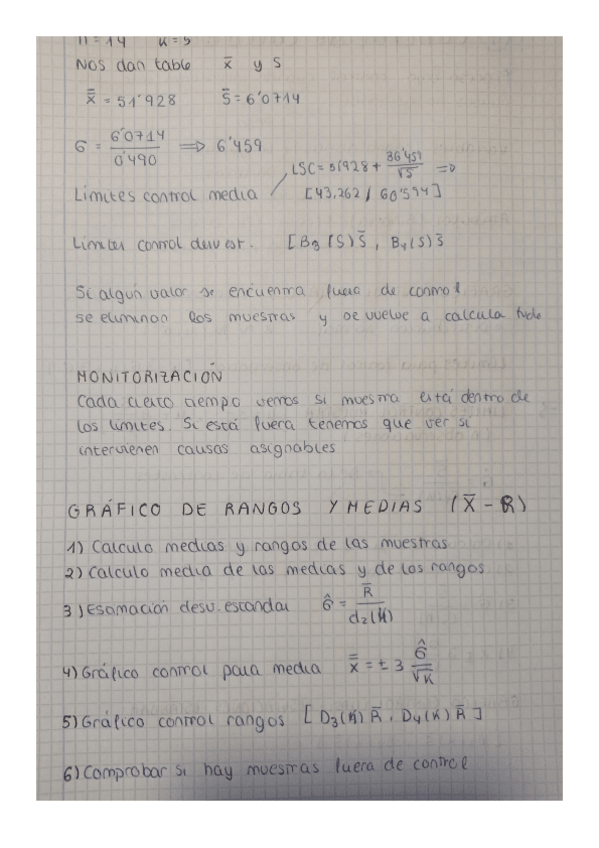 n = 14 K = 5
Nos dan table x̄ y S
x̿ = 51'928 S̄ = 6'0714
σ = 6'0714 / 0'490 => 6'459
LSC = 51928 + 36'459 / √5 =>
Límites control media [43,262 / 60'594]
Límites control desv est. [B₃(5) S̄, B₄(5) S̄
Si algún valor se encuentra fuera de control
se eliminan los muestras y se vuelve a calcula todo
MONITORIZACIÓN
Cada cierto tiempo vemos si muestra está dentro de
los límites. Si está fuera tenemos que ver si
intervienen causas asignables
GRÁFICO DE RANGOS Y MEDIAS (X̄ - R)
1) Calculo medias y rangos de las muestras
2) Calculo media de las medias y de los rangos
3) Estimación desv. estandar σ̂ = R̄ / d₂(K)
4) Gráfico control para media x̿ = ± 3 σ̂ / √K
5) Gráfico control rangos [D₃(K) R̄, D₄(K) R̄]
6) Comprobar si hay muestras fuera de control